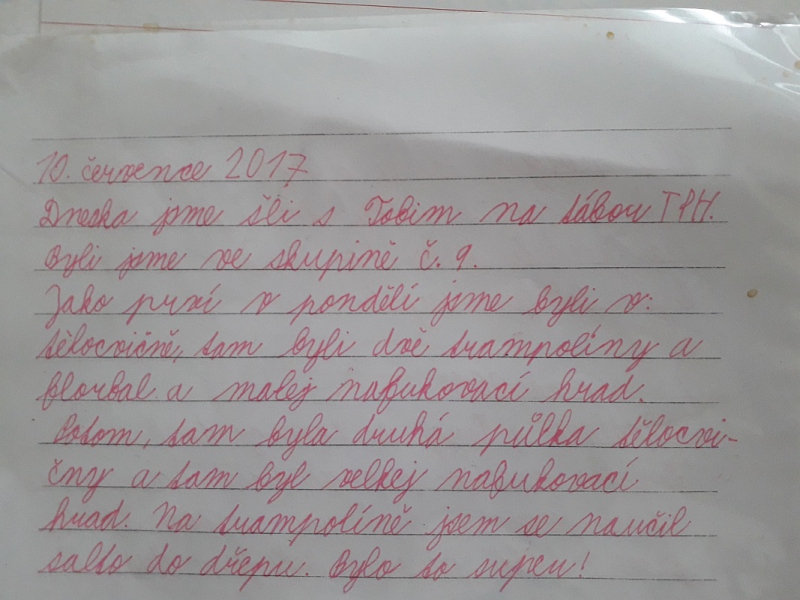 10. července 2017
Dneska jsme šli s Tobim na tábor TPH.
Byli jsme ve skupině č. 9.
Jako prví v pondělí jsme byli v:
tělocvičně, tam byli dvě trampolíny a
florbal a malej nafukovací hrad.
Potom, tam byla druhá půlka tělocvi-
čny a tam byl velkej nafukovací
hrad. Na trampolíně jsem se naučil
salto do dřepu. Bylo to super!